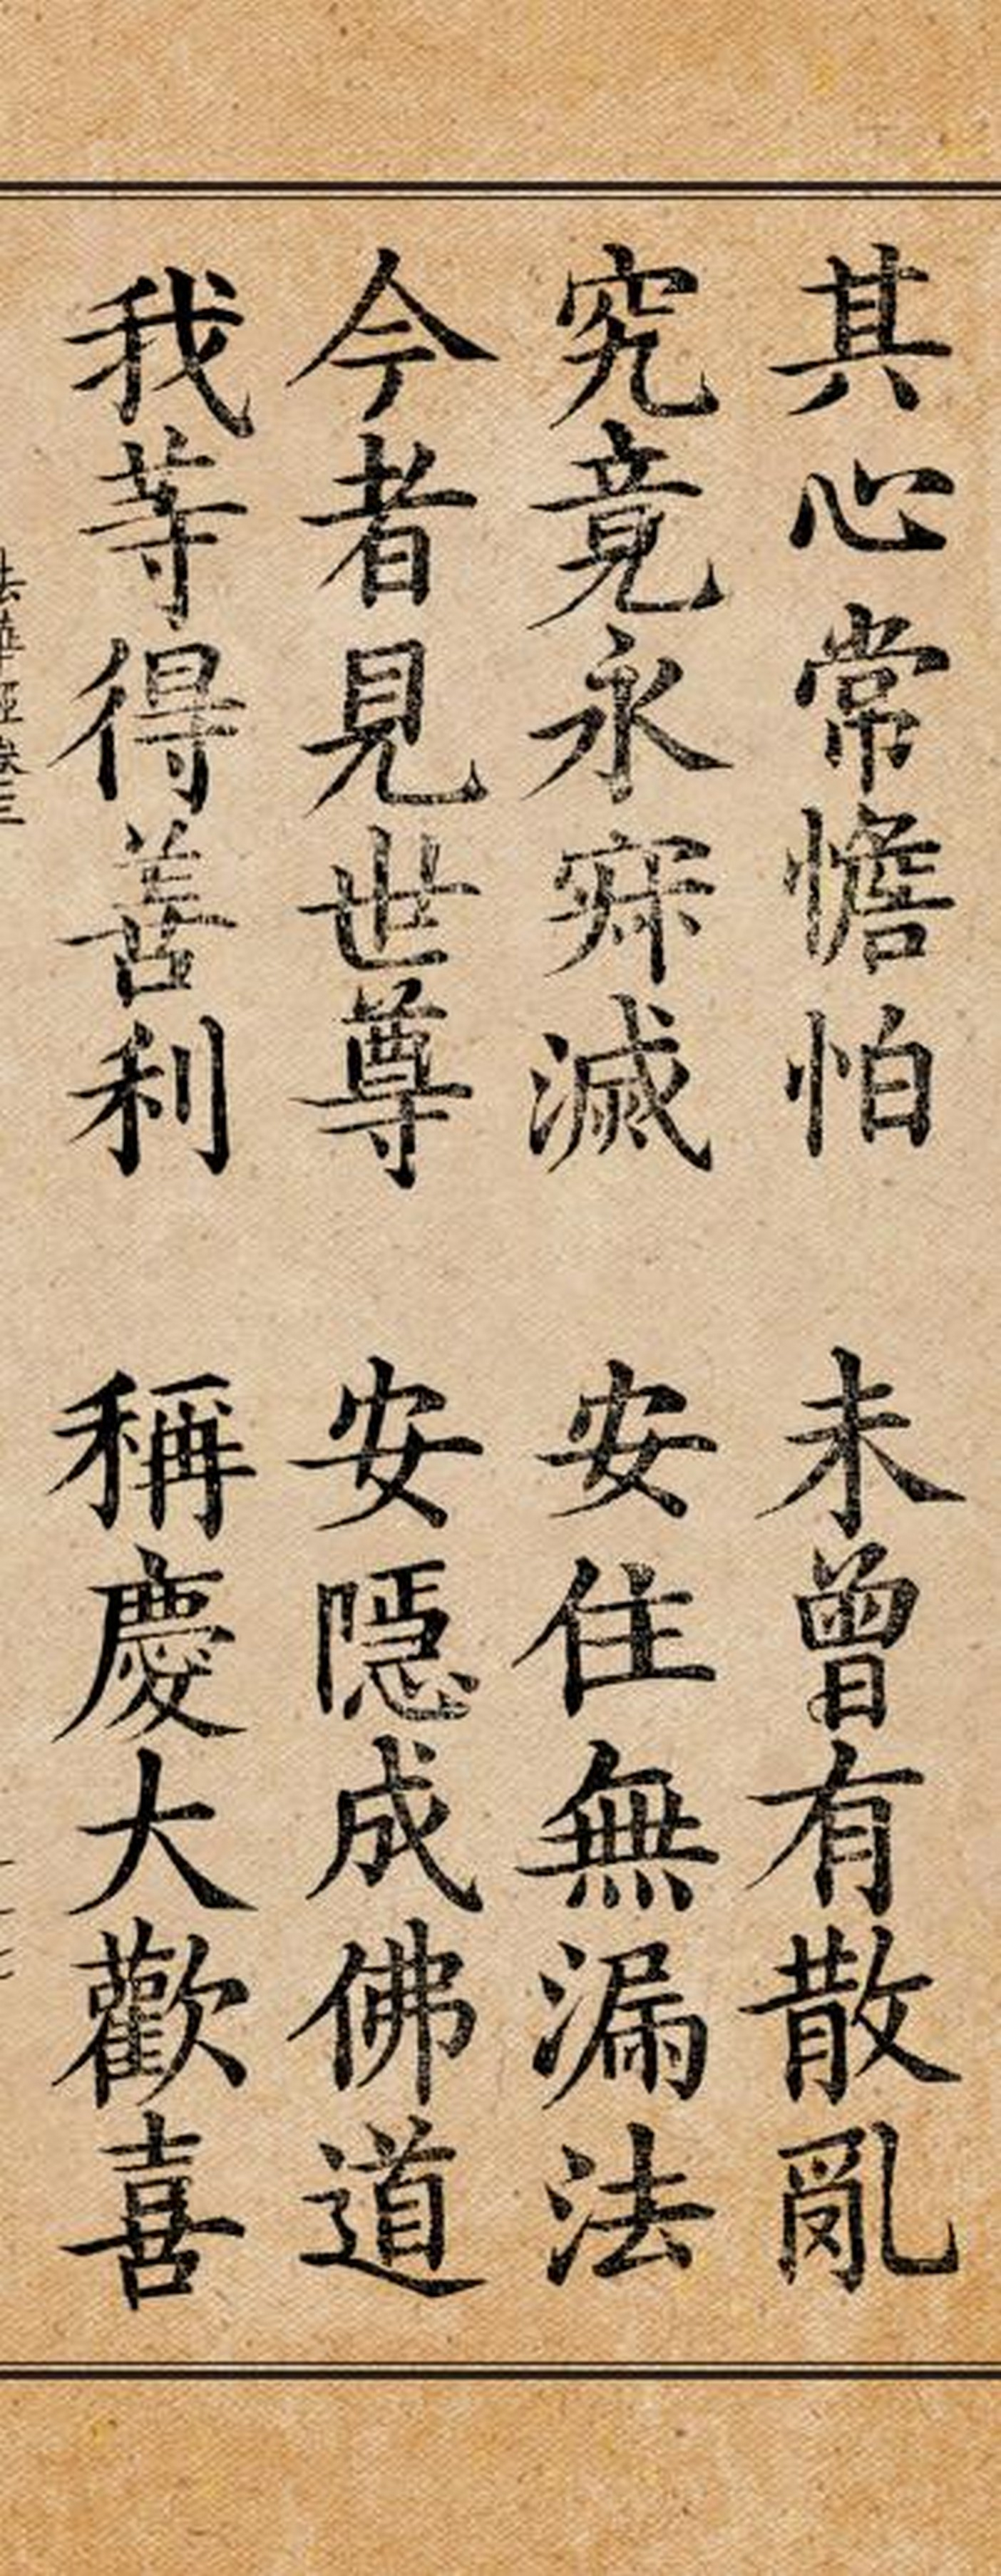 其心常憺怕 未曾有散亂
究竟永寂滅 安住無漏法
今者見世尊 安隱成佛道
我等得善利 稱慶大歡喜
法華經卷三